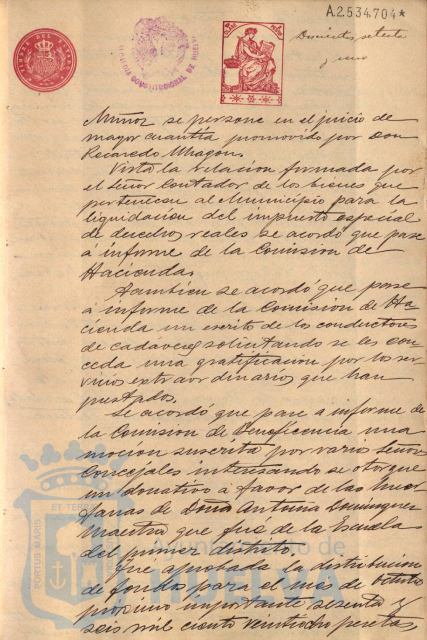 A.2.534.704*
Doscientos setenta
y uno
Muñoz se persone en el juicio de
mayor cuantía promovido por Don
Recaredo Uhagon.
Vista la relacion formada por
el Señor Contador de los bienes que
pertenecen al Municipio para la
liquidacion del impuesto especial
de derechos reales se acordó que pase
á informe de la Comision de
Hacienda.
Tambien se acordó que pase
á informe de la Comision de Ha
cienda un escrito de los conductores
de cadaveres solicitando se les con
ceda una gratificacion por los ser
vicios extraordinarios que han
prestados.
Se acordó que pase a informe de
la Comision de Beneficencia una
mocion suscrita por varios Señores
Concejales interesando se otorgue
un donativo á favor de las Huer
fanas de Doña Antonia Dominguez
Maestra que fué de la Escuela
del primer distrito.
Fué aprobada la distribucion
de fondos para el mes de Octubre
proximo importante sesenta y
seis mil ciento veintiocho pesetas
PORTUS MARIS
ET TERR
Ayuntamiento de
HUELVA